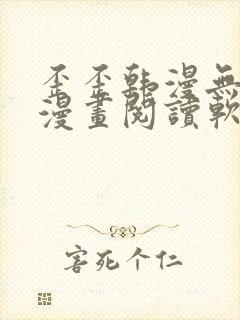 歪歪韩漫無
漫畫閱讀軟
害死个仁